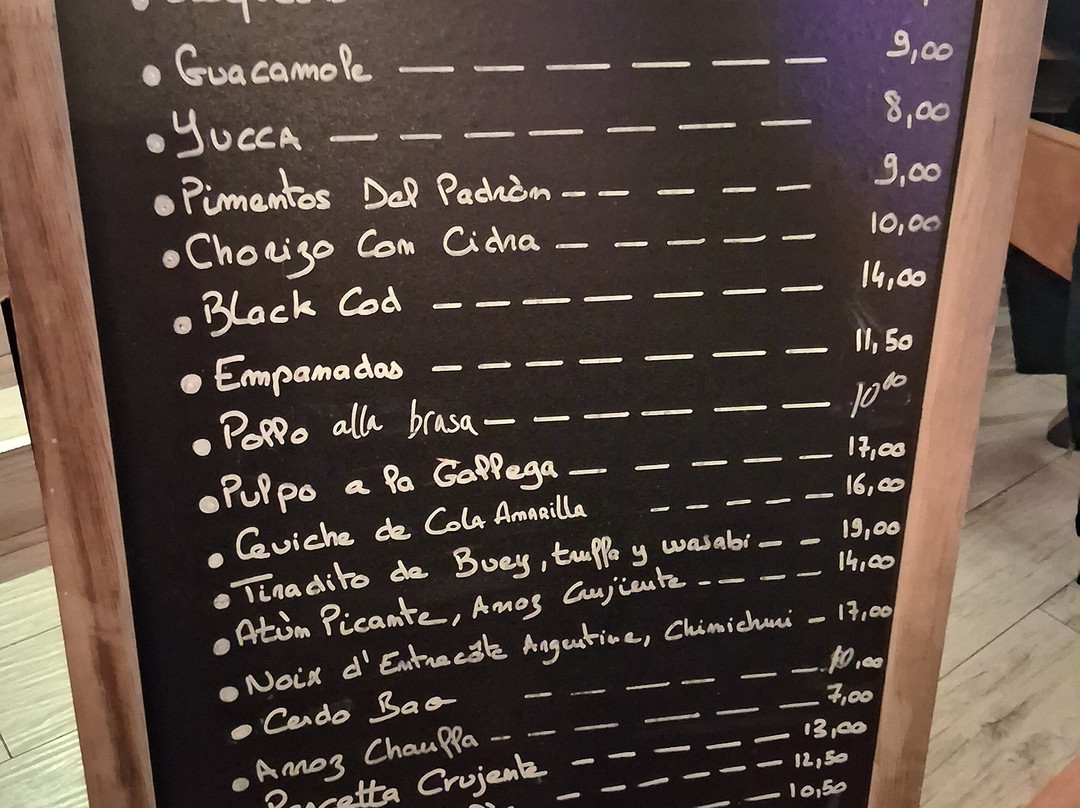 • Guacamole — — — — — — 9,00
• Yucca — — — — — — — 8,00
• Pimentos Del Padròn — — — — — 9,00
• Chorizo Con Cidra — — — — — 10,00
• Black Cod — — — — — — 14,00
• Empanadas — — — — — — 11,50
• Pollo alla brasa — — — — — 10,00
• Pulpo a la Gallega — — — — — 17,00
• Ceviche de Cola Amarilla — — — — 16,00
• Tiradito de Buey, truffa y wasabi — — 19,00
• Atùn Picante, Arroz Crujiente - — — — 14,00
• Noix d'Entrecôte Argentine, Chimichuri — 17,00
• Cerdo Bao — — — — — — 10,00
• Arroz Chauffa — — — — — 7,00
Pancetta Crujente — — — — — 13,00
12,50
10,50